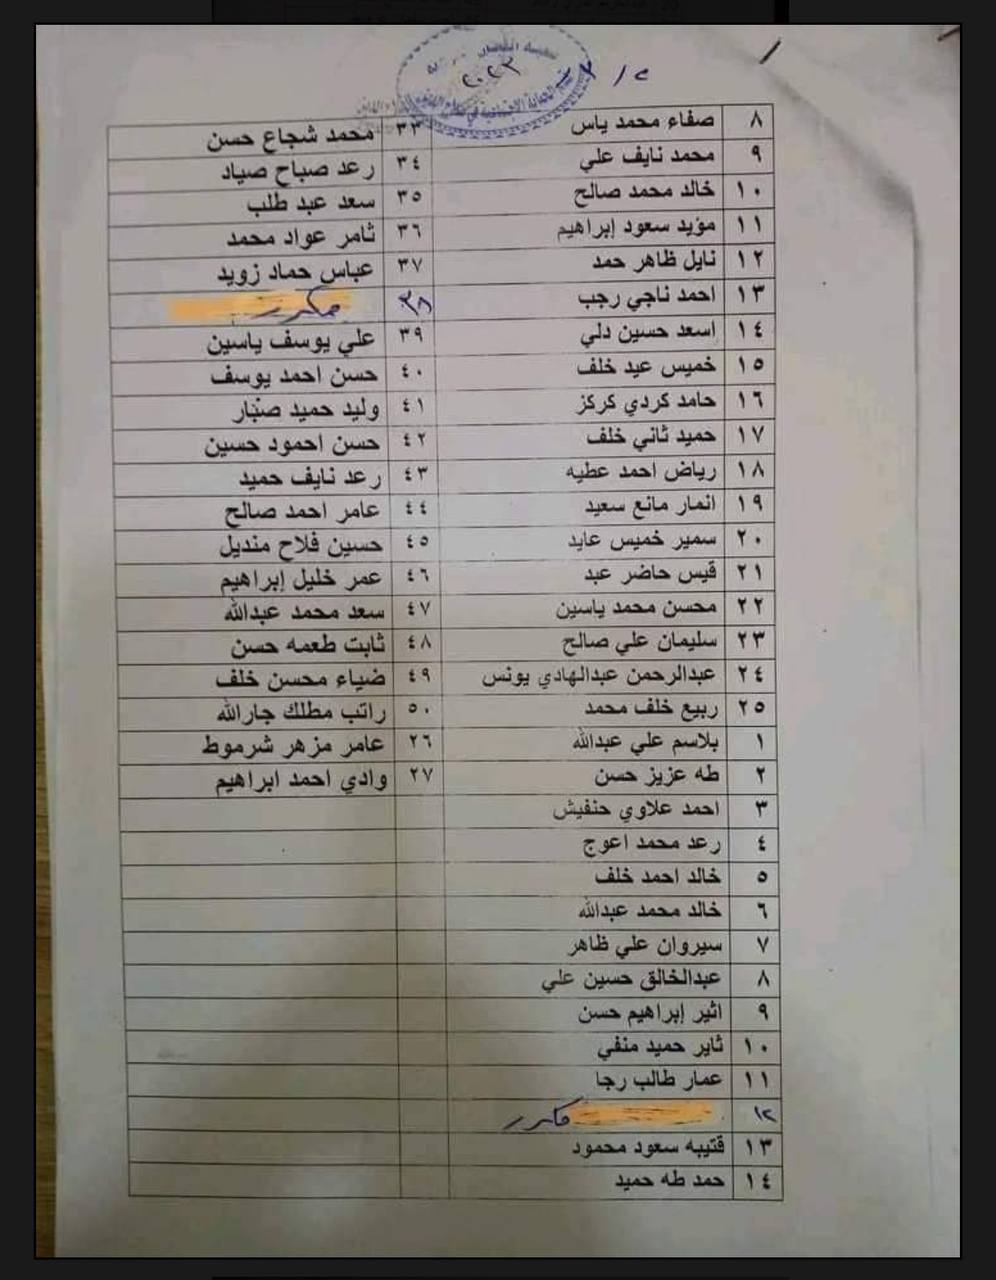 ٢ /
٢٠٢٣
٨ صفاء محمد ياس
٩ محمد نايف علي
١٠ خالد محمد صالح
١١ مؤيد سعود إبراهيم
١٢ نايل ظاهر حمد
١٣ احمد ناجي رجب
١٤ اسعد حسين دلي
١٥ خميس عيد خلف
١٦ حامد كردي كركز
١٧ حميد ثاني خلف
١٨ رياض احمد عطيه
١٩ انمار مانع سعيد
٢٠ سمير خميس عايد
٢١ قيس حاضر عبد
٢٢ محسن محمد ياسين
٢٣ سليمان علي صالح
٢٤ عبدالرحمن عبدالهادي يونس
٢٥ ربيع خلف محمد
١ بلاسم علي عبدالله
٢ طه عزيز حسن
٣ احمد علاوي حنفيش
٤ رعد محمد اعوج
٥ خالد احمد خلف
٦ خالد محمد عبدالله
٧ سيروان علي ظاهر
٨ عبدالخالق حسين علي
٩ اثير إبراهيم حسن
١٠ ثاير حميد منفي
١١ عمار طالب رجا
١٢ مكرر
١٣ قتيبه سعود محمود
١٤ حمد طه حميد
٣٣ محمد شجاع حسن
٣٤ رعد صباح صياد
٣٥ سعد عبد طلب
٣٦ ثامر عواد محمد
٣٧ عباس حماد زويد
٣٨ مكرر
٣٩ علي يوسف ياسين
٤٠ حسن احمد يوسف
٤١ وليد حميد صبّار
٤٢ حسن احمود حسين
٤٣ رعد نايف حميد
٤٤ عامر احمد صالح
٤٥ حسين فلاح منديل
٤٦ عمر خليل إبراهيم
٤٧ سعد محمد عبدالله
٤٨ ثابت طعمه حسن
٤٩ ضياء محسن خلف
٥٠ راتب مطلك جارالله
٢٦ عامر مزهر شرموط
٢٧ وادي احمد ابراهيم